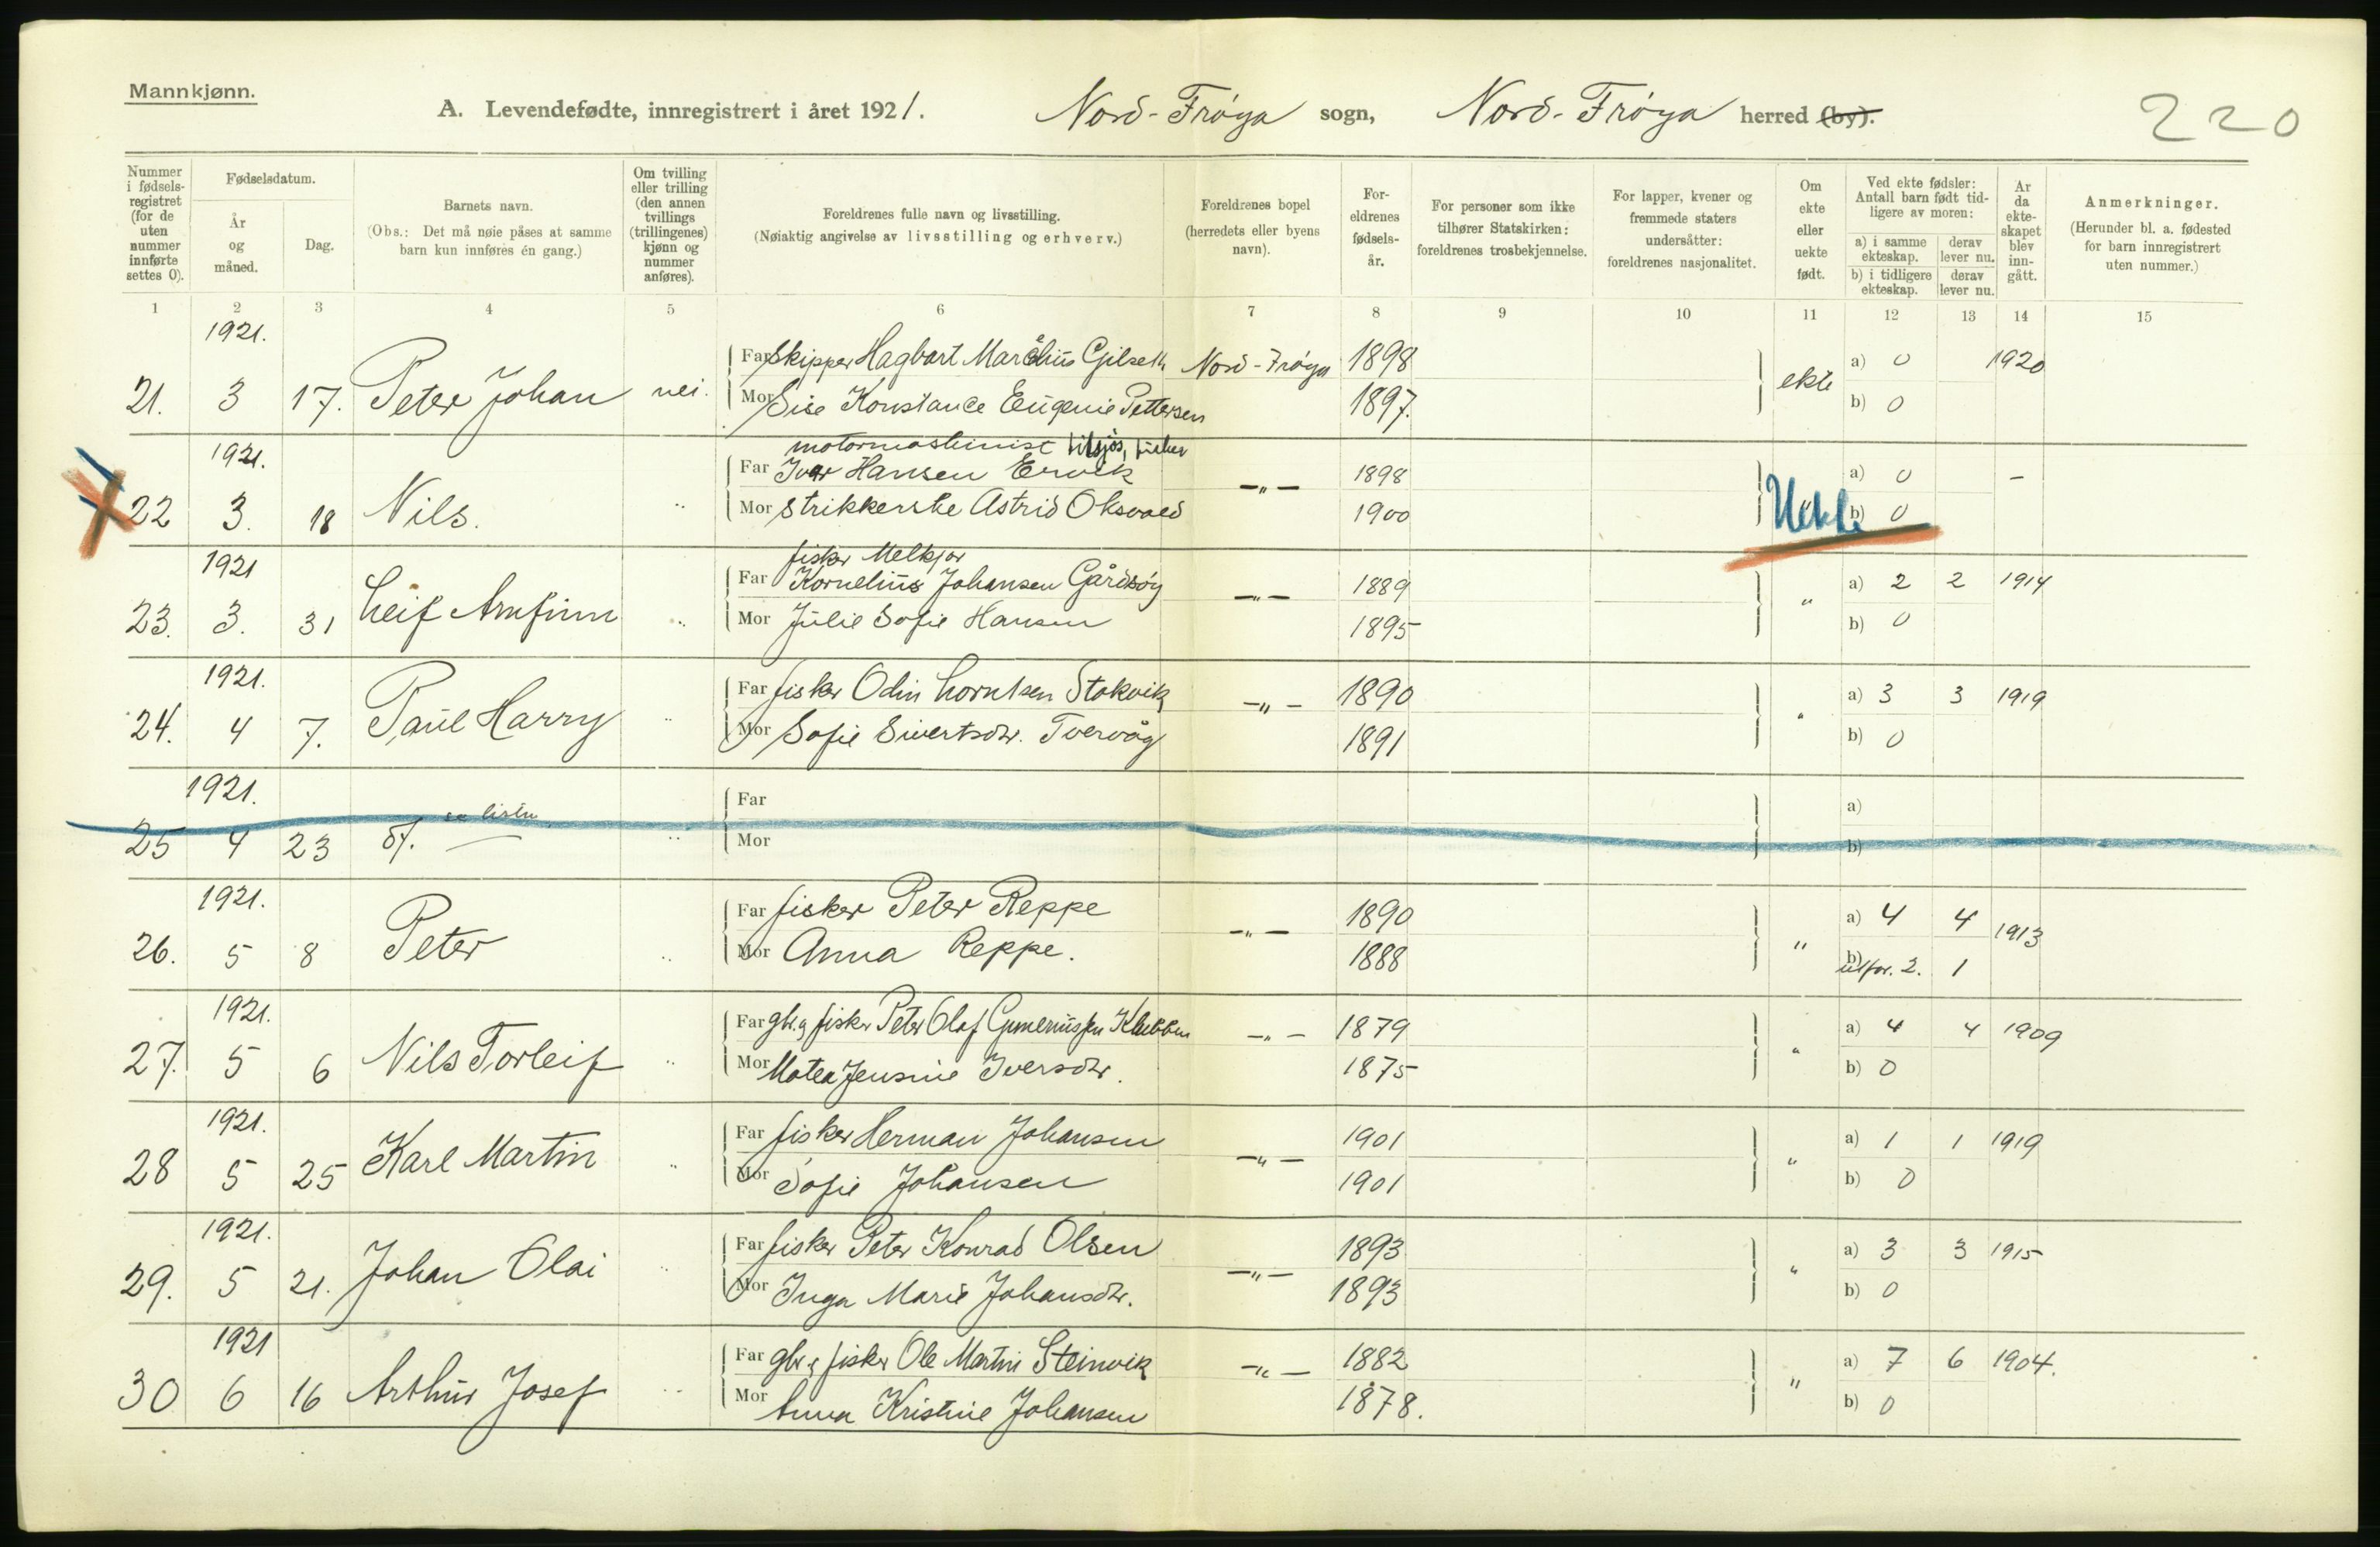 Mannkjønn.
A. Levendefødte, innregistrert i året 1921. Nord-Frøya sogn, Nord-Frøya herred (by). 220
Nummer i fødsels-registret (for de uten nummer innførte settes 0).
Fødselsdatum.
År og måned.
Dag.
Barnets navn.
(Obs.: Det må nøie påses at samme barn kun innføres én gang.)
Om tvilling eller trilling (den annen tvillings (trillingenes) kjønn og nummer anføres).
Foreldrenes fulle navn og livsstilling.
(Nøiaktig angivelse av livsstilling og erhverv.)
Foreldrenes bopel (herredets eller byens navn).
For-eldrenes fødsels-år.
For personer som ikke tilhører Statskirken: foreldrenes trosbekjennelse.
For lapper, kvener og fremmede staters undersåtter: foreldrenes nasjonalitet.
Om ekte eller uekte født.
Ved ekte fødsler: Antall barn født tid-ligere av moren:
a) i samme ekteskap. derav lever nu.
b) i tidligere ekteskap. derav lever nu.
År da ekte-skapet blev inn-gått.
Anmerkninger.
(Herunder bl. a. fødested for barn innregistrert uten nummer.)
1 2 3 4 5 6 7 8 9 10 11 12 13 14 15
1921.
Far Skipper Hagbart Marelius Gilseth Nord-Frøya 1898 a) 0 1920
21. 3 17. Peter Johan nei. ekte
Mor Sise Konstance Eugenie Pettersen 1897. b) 0
1921. motormaskinist tilsjøs, fisker
Far Ivar Hansen Ervik 1898 a) 0 -
22 3. 18 Nils. " -"- Uekte
Mor strikkerske Astrid Oksvold 1900 b) 0
1921 fisker Melkjør
Far Kornelius Johansen Gårdsøy 1889 a) 2 2 1914
23. 3. 31 Leif Arnfinn " -"- "
Mor Julie Sofie Hansen 1895 b) 0
1921.
Far fisker Odin Lorntsen Stokvik 1890 a) 3 3 1919
24. 4 7. Paul Harry " -"- "
Mor Sofie Sivertsdtr. Tvervåg 1891 b) 0
1921. Far a)
25 4 23 df. se listen "
Mor b)
1921.
Far fisker Peter Reppe 1890 a) 4 4 1913
26. 5 8 Peter " -"- "
Mor Anna Reppe. 1888 b) utfor. 2. 1
1921.
Far gbr. & fisker Peter Olaf Guneriussen Klubben 1879 a) 4 4 1909
27. 5 6 Nils Torleif " -"- "
Mor Motea Jensine Iversdtr. 1875 b) 0
1921.
Far fisker Herman Johansen 1901 a) 1 1 1919
28 5 25 Karl Martin " -"- "
Mor Sofie Johansen 1901 b) 0
1921.
Far fisker Peter Konrad Olsen 1893 a) 3 3 1915
29. 5 21. Johan Olai " -"- "
Mor Inga Marie Johansdtr. 1893 b) 0
1921
Far gbr. & fisker Ole Martin Steinvik 1882 a) 7 6 1904.
30 6 16 Arthur Josef " -"- "
Mor Anna Kristine Johansen 1878. b) 0